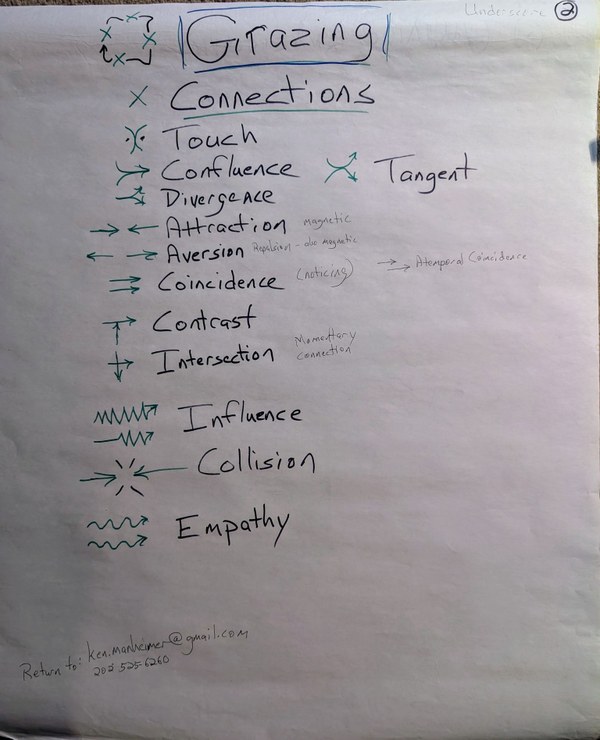 Underscore 2
Grazing
Connections
Touch
Confluence Tangent
Divergence
Attraction magnetic
Aversion Repulsion - also magnetic
Coincidence (noticing) Atemporal Coincidence
Contrast
Intersection Momentary connection
Influence
Collision
Empathy
Return to: ken.manheimer@gmail.com
202 525-6260